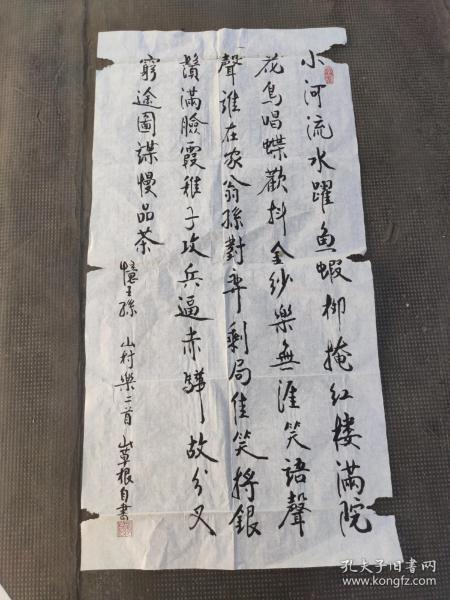 小河流水躍魚蝦柳掩红楼滿院
花鳥唱蝶歡抖金紗樂無涯笑語聲
聲誰在家翁孫對弈剩局佳笑捋銀
鬚滿臉霞稚子攻兵逼赤驊故分叉
窮途圖謀慢品茶
憶王孫 山村樂二首 山草根自書
孔夫子旧书网
www.kongfz.com